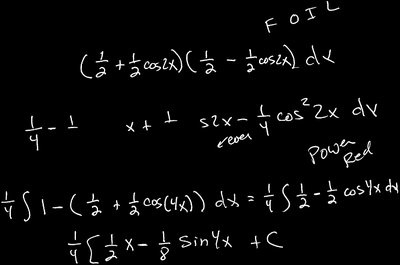 F O I L
(1/2 + 1/2 cos2x)(1/2 - 1/2 cos2x) dx
1/4 - 1 x + 1 s2x - 1/4 cos² 2x dx
Power
Red
1/4 ∫ 1 - (1/2 + 1/2 cos(4x)) dx = 1/4 ∫ 1/2 - 1/2 cos4x dx
1/4 [ 1/2 x - 1/8 sin4x + C